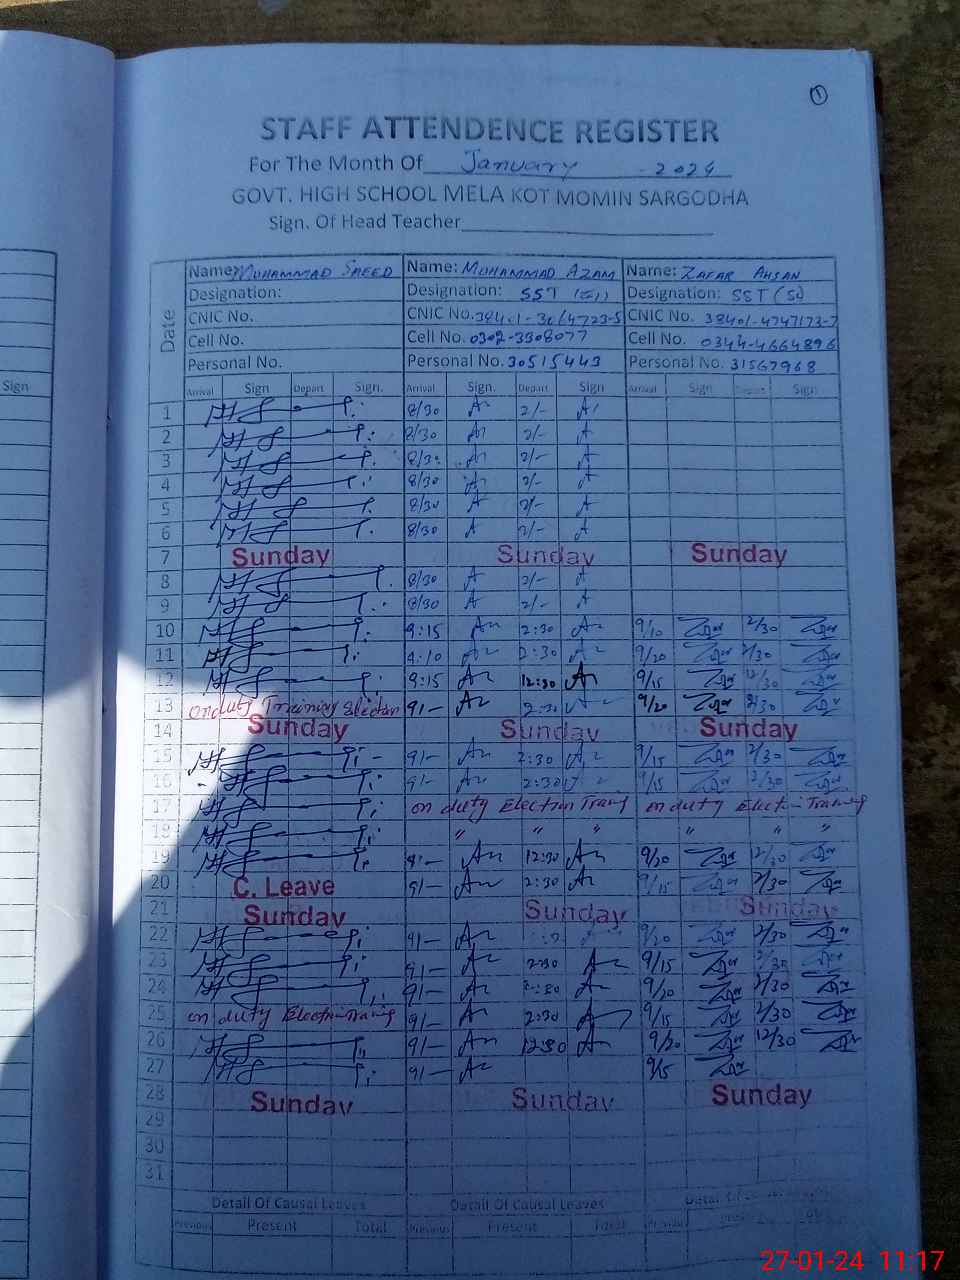 1
STAFF ATTENDENCE REGISTER
For The Month Of January - 2024
GOVT. HIGH SCHOOL MELA KOT MOMIN SARGODHA
Sign. Of Head Teacher
Sign
Date
Name: MUHAMMAD SAEED Name: MUHAMMAD AZAM Name: ZAFAR AHSAN
Designation: Designation: SST Designation: SST (Sc)
CNIC No. CNIC No. CNIC No. 38401-4747173-7
Cell No. Cell No. 0302-3308077 Cell No. 0344-4664896
Personal No. Personal No. 30515443 Personal No. 31567968
Arrival Sign Depart Sign. Arrival Sign. Depart Sign Arrival Sign Depart Sign
1 8/30 2/-
2 8/30 2/-
3 8/30 2/-
4 8/30 2/-
5 8/30 2/-
6 8/30 2/-
7 Sunday Sunday Sunday
8 8/30 2/-
9 8/30 2/-
10 9:15 2:30 9/10 2/30
11 9:10 2:30 9/20 2/30
12 9:15 12:30 9/15 12/30
13 on duty Training Election 9/- 2:30 9/20 2/30
14 Sunday Sunday Sunday
15 9/- 2:30 9/15 2/30
16 9/- 2:30 9/15 2/30
17 on duty Election Traing on duty Election Training
18 " " " " " "
19 9/- 12:30 9/20 12/30
20 C. Leave 9/- 2:30 9/15 2/30
21 Sunday Sunday Sunday
22 9/- 9/20 2/30
23 9/- 2:30 9/15 2/30
24 9/- 2:30 9/20 2/30
25 on duty Election Traing 9/- 2:30 9/15 2/30
26 9/- 12:30 9/20 12/30
27 9/- 9/15
28 Sunday Sunday Sunday
29
30
31
Detail Of Causal Leaves Detail Of Causal Leaves Detail Of
Previous Present Total Previous Present Total Previous
27-01-24 11:17